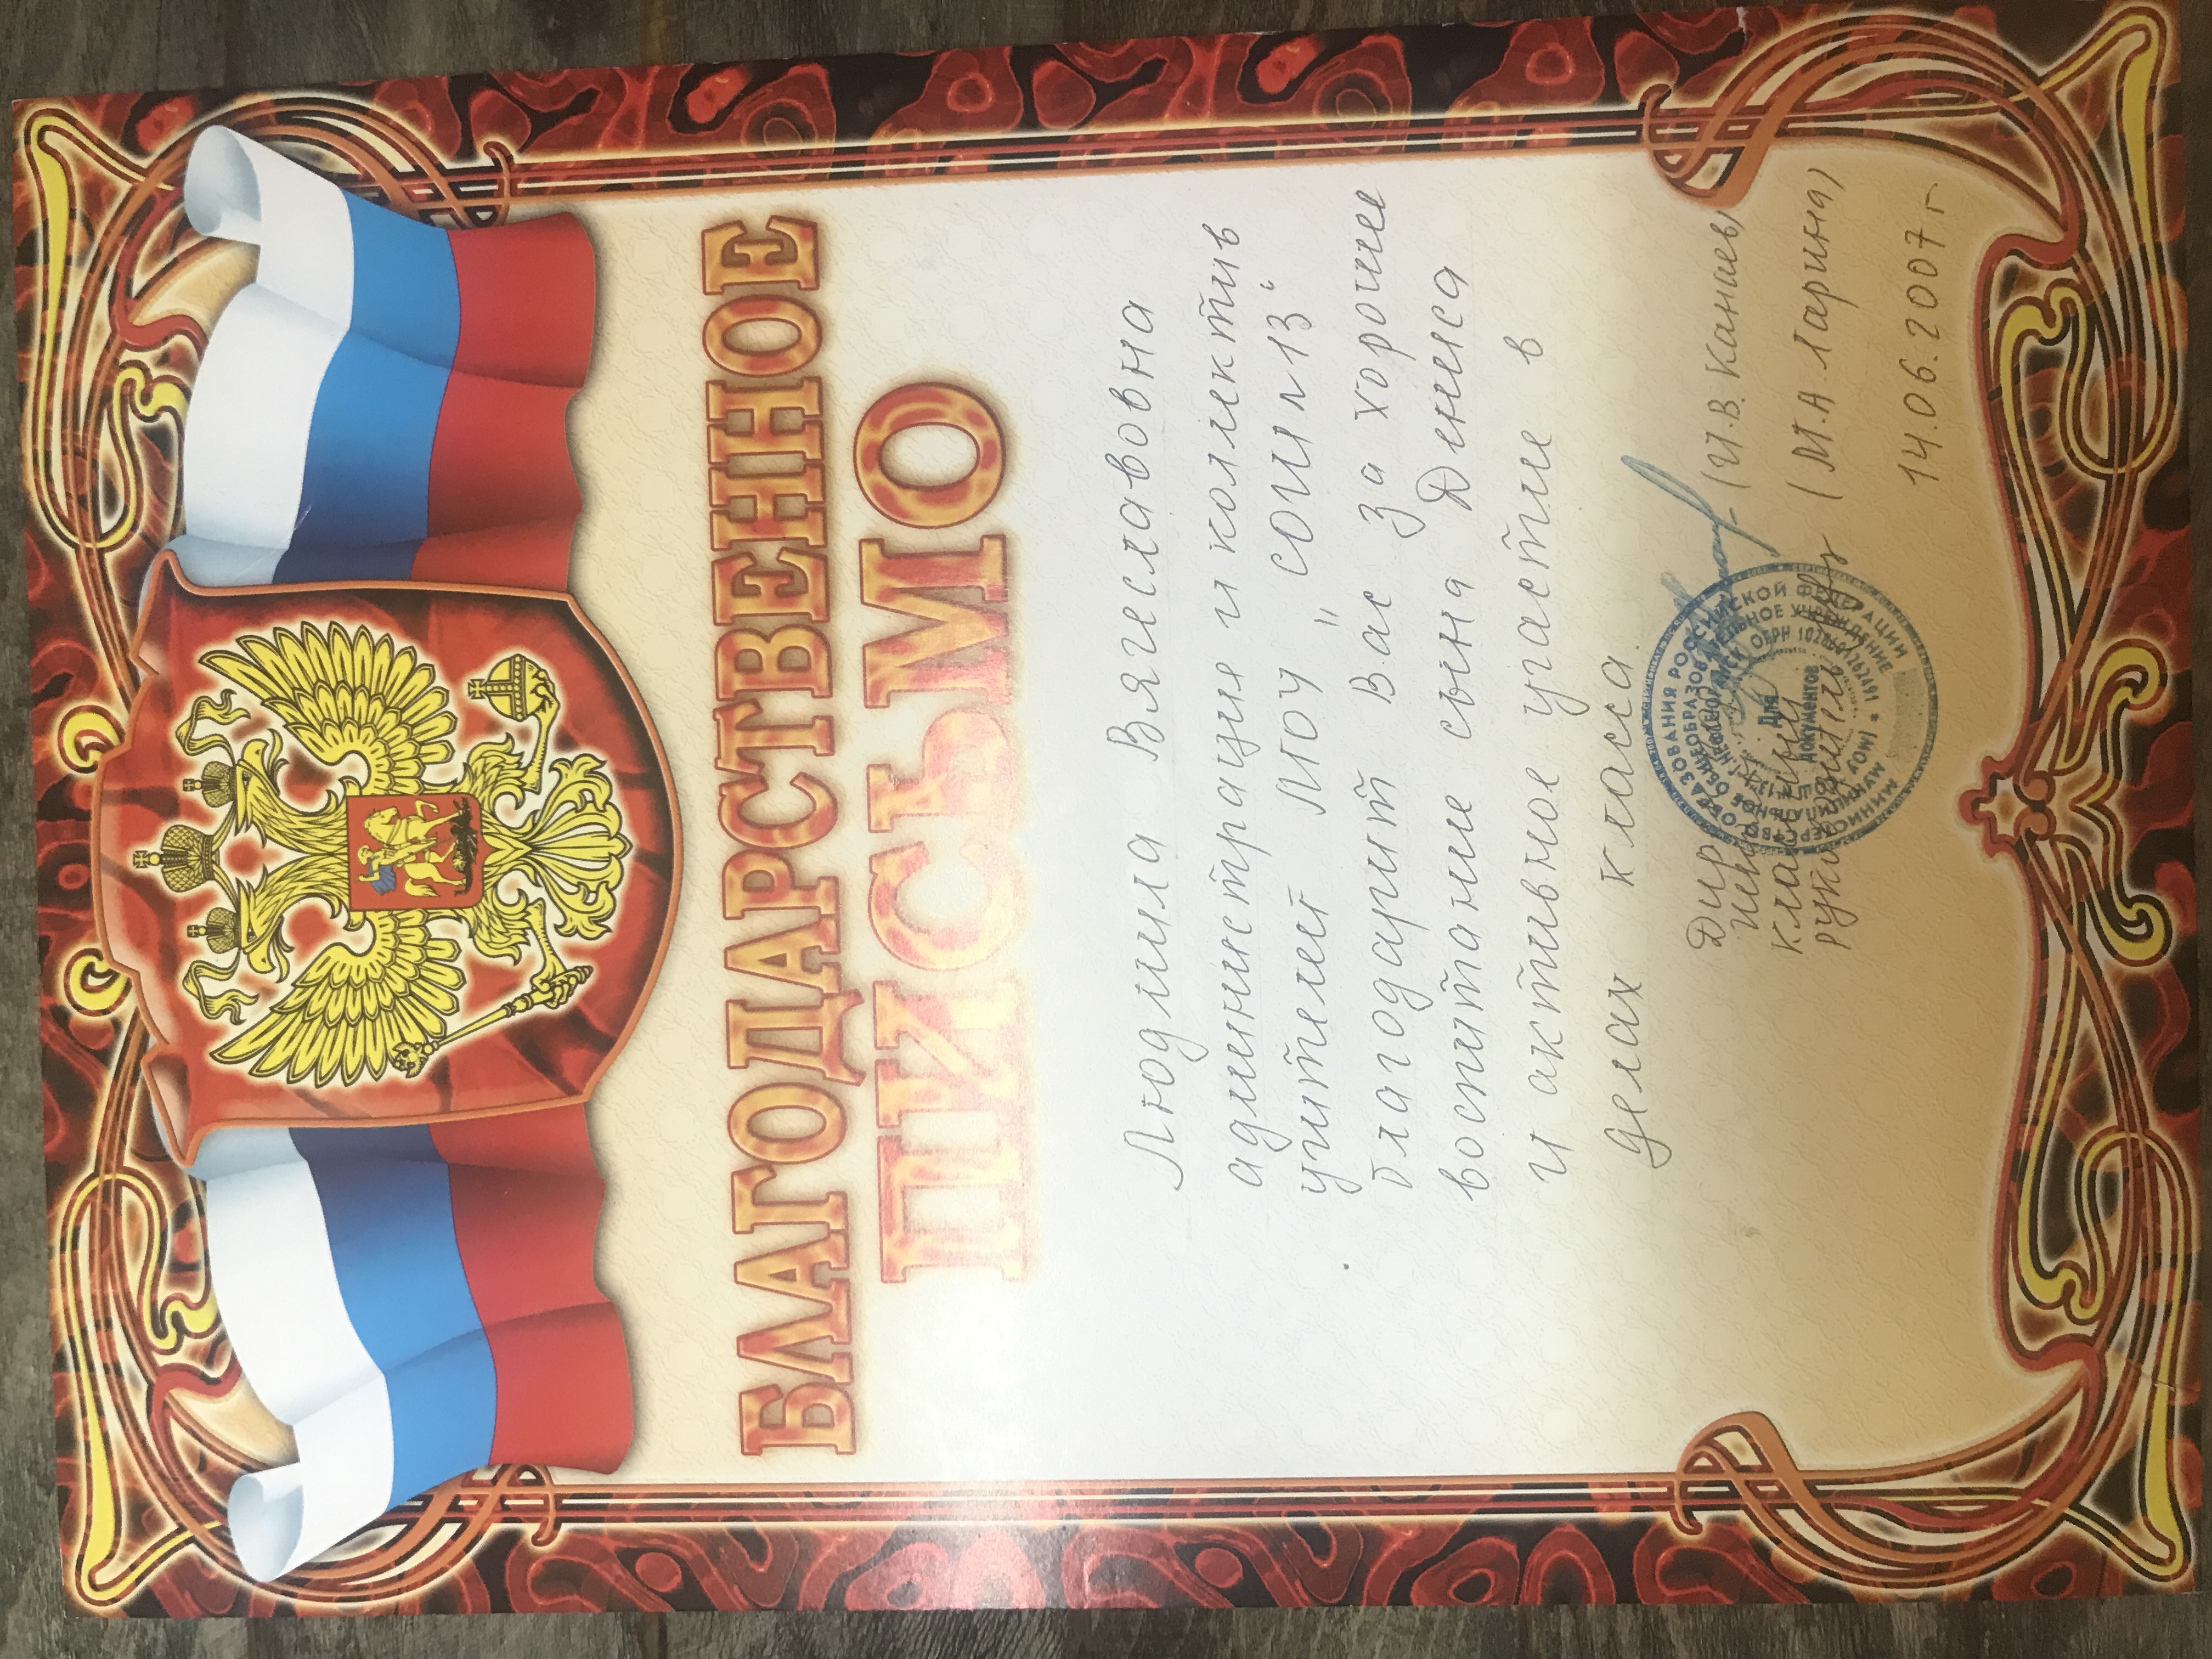 БЛАГОДАРСТВЕННОЕ
ПИСЬМО
Людмила Вячеславовна
администрация и коллектив
учителей МОУ „СОШ №13“
благодарит Вас за хорошее
воспитание сына Дениса
и активное участие в
делах класса.
Директор (И.В. Канаев)
школы
классный
руководитель (М.А. Ларина)
МИНИСТЕРСТВО ОБРАЗОВАНИЯ РОССИЙСКОЙ ФЕДЕРАЦИИ
МУНИЦИПАЛЬНОЕ ОБЩЕОБРАЗОВАТЕЛЬНОЕ УЧРЕЖДЕНИЕ
(МОУ СОШ №13) г. НЕФТЕЮГАНСК
Для
документов
14.06.2007 г